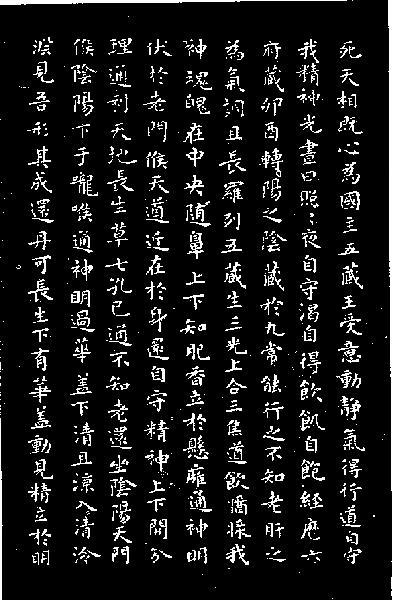 死天相既心為國主五藏王受意動靜氣得行道自守
我精神光晝日照〻夜自守渴自得飲飢自飽經歷六
府藏卯酉轉陽之陰藏於九常能行之不知老肝之
為氣調且長羅列五藏生三光上合三焦道飲漿我
神魂魄在中央隨鼻上下知肥香立於懸雍通神明
伏於老門候天道近在於身還自守精神上下開分
理通利天地長生草七孔已通不知老還坐陰陽天門
候陰陽下于嚨喉通神明過華蓋下清且涼入清泠
淵見吾形其成還丹可長生下有華蓋動見精立於明